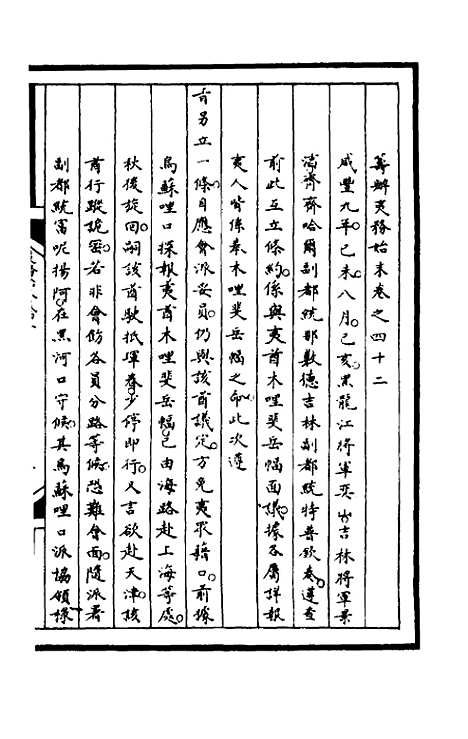 籌辦夷務始末卷之四十二
咸豐九年己未八月己亥黑龍江將軍奕山吉林將軍景
淳齊齊哈爾副都統那敷德吉林副都統特普欽奏遵查
前此互立條約係與夷酋木哩斐岳幅面議據各屬詳報
夷人皆係奉木哩斐岳幅之命此次遵
旨另立一條自應會派妥員仍與該酋議定方免夷眾藉口前據
烏蘇哩口探報夷酋木哩斐岳幅已由海路赴上海等處
秋後旋回嗣該酋駛抵琿春少停即行又言欲赴天津該
酋行蹤詭密若非會飭各員分路等候恐難會面隨派署
副都統富呢揚阿在黑河口守候其烏蘇哩口派協領祿